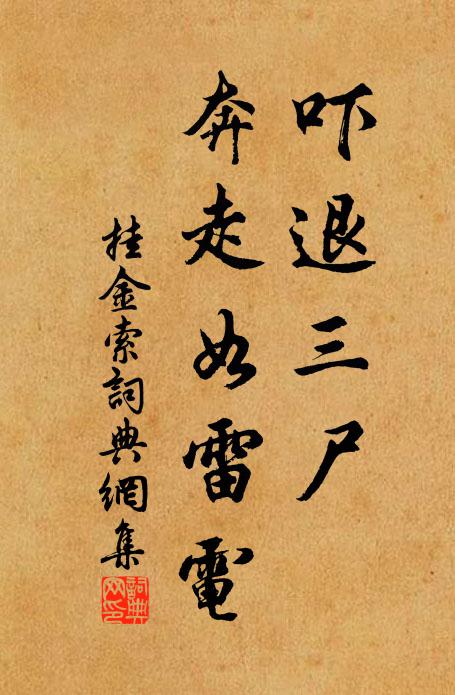 吓退三尸
奔走如雷電
挂金索詞典網集
詞典网印